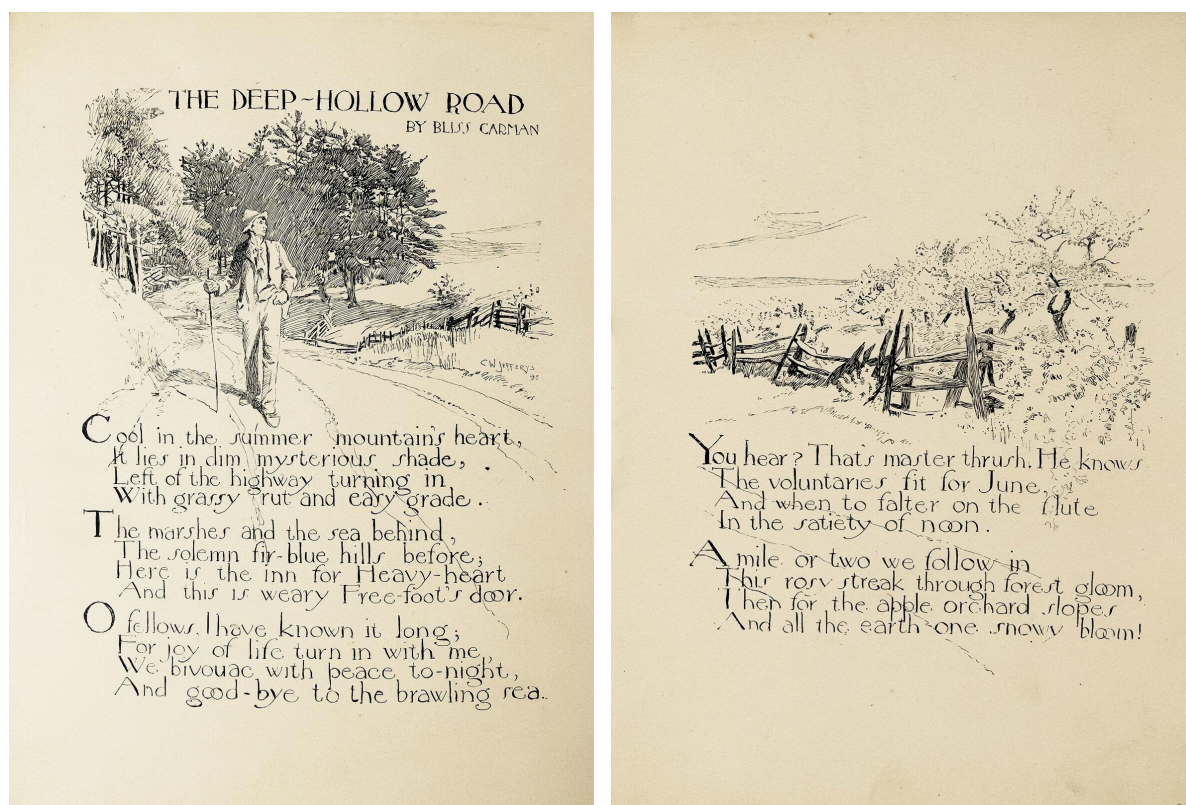 THE DEEP-HOLLOW ROAD
BY BLISS CARMAN
C.W. JEFFERYS
95
Cool in the summer mountain's heart,
It lies in dim mysterious shade,
Left of the highway turning in
With grassy rut and easy grade.
The marshes and the sea behind,
The solemn fir-blue hills before;
Here is the inn for Heavy-heart
And this is weary Free-foot's door.
O fellows, I have known it long;
For joy of life turn in with me,
We bivouac with peace to-night,
And good-bye to the brawling sea.
You hear? That's master thrush. He knows
The voluntaries fit for June,
And when to falter on the flute
In the satiety of noon.
A mile or two we follow in
This rosy streak through forest gloom,
Then for the apple orchard slopes
And all the earth one snowy bloom!